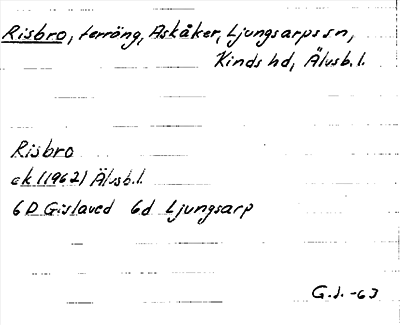 Risbro, terräng, Askåker, Ljungsarps sn,
Kinds hd, Älvsb. l.
Risbro
ek (1962) Älvsb. l.
6D Gislaved 6d Ljungsarp
G.J. -63